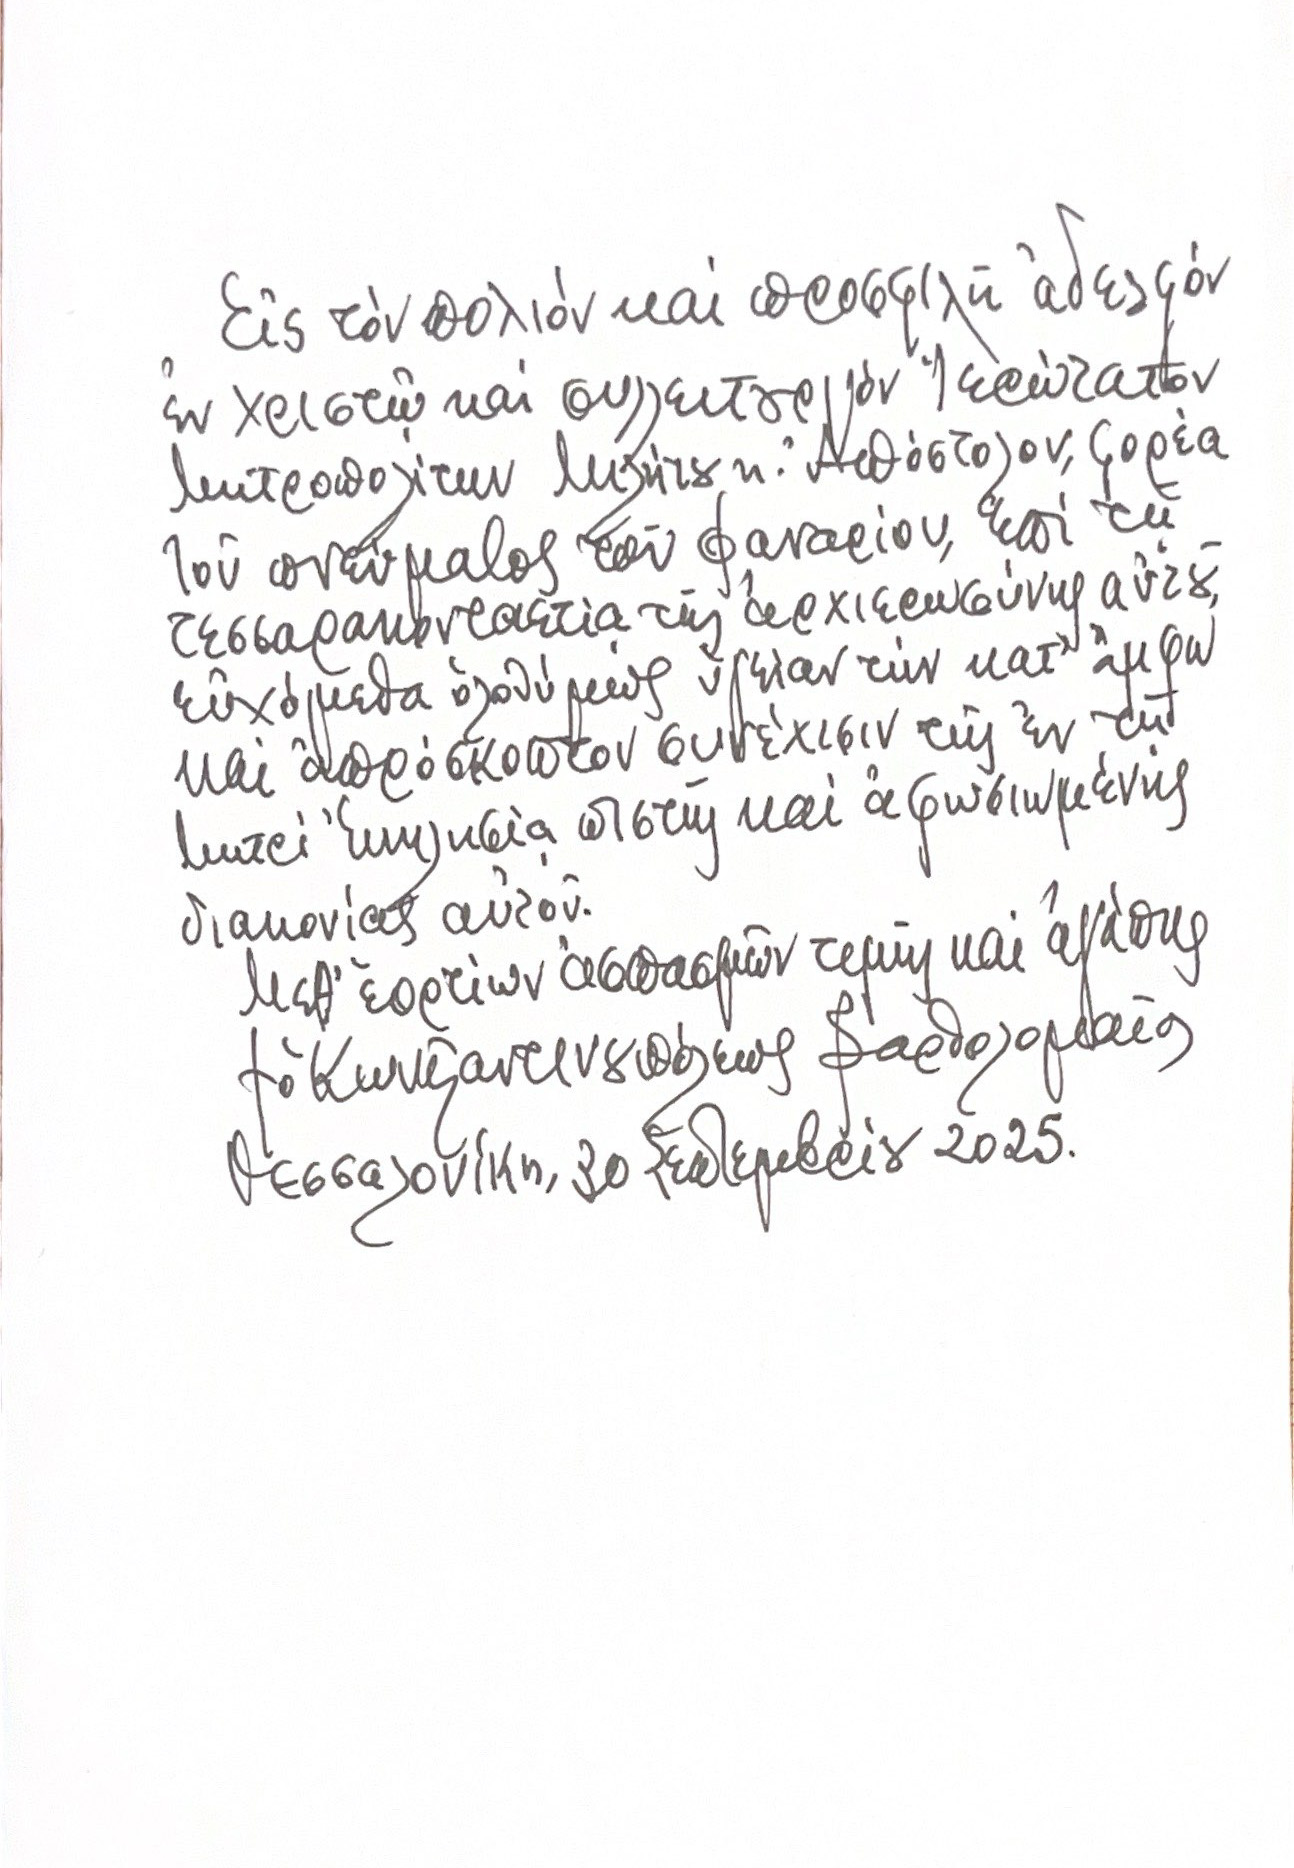 Εἰς τόν πολιόν καί προσφιλῆ ἀδελφόν
ἐν Χριστῷ καί συλλειτȣργόν Ἱερώτατον
Μητροπολίτην Μιλήτȣ κ. Ἀπόστολον, φορέα
τοῦ πνεύματος τοῦ Φαναρίου, ἐπί τῇ
τεσσαρακονταετίᾳ τῆς ἀρχιερωσύνης αὐτȣ͂,
εὐχόμεθα ὁλοθύμως ὑγείαν τήν κατ' ἄμφω
καί ἀπρόσκοπτον συνέχισιν τῆς ἐν τῇ
Μητρί Ἐκκλησίᾳ πιστῆς καί ἀφωσιωμένης
διακονίας αὐτοῦ.
Μεθ' ἑορτίων ἀσπασμῶν τιμῆς καί ἀγάπης
† ὁ Κωνϛαντινȣπόλεως Βαρθολομαῖος
Θεσσαλονίκη, 30 Σεπτεμβρίȣ 2025.